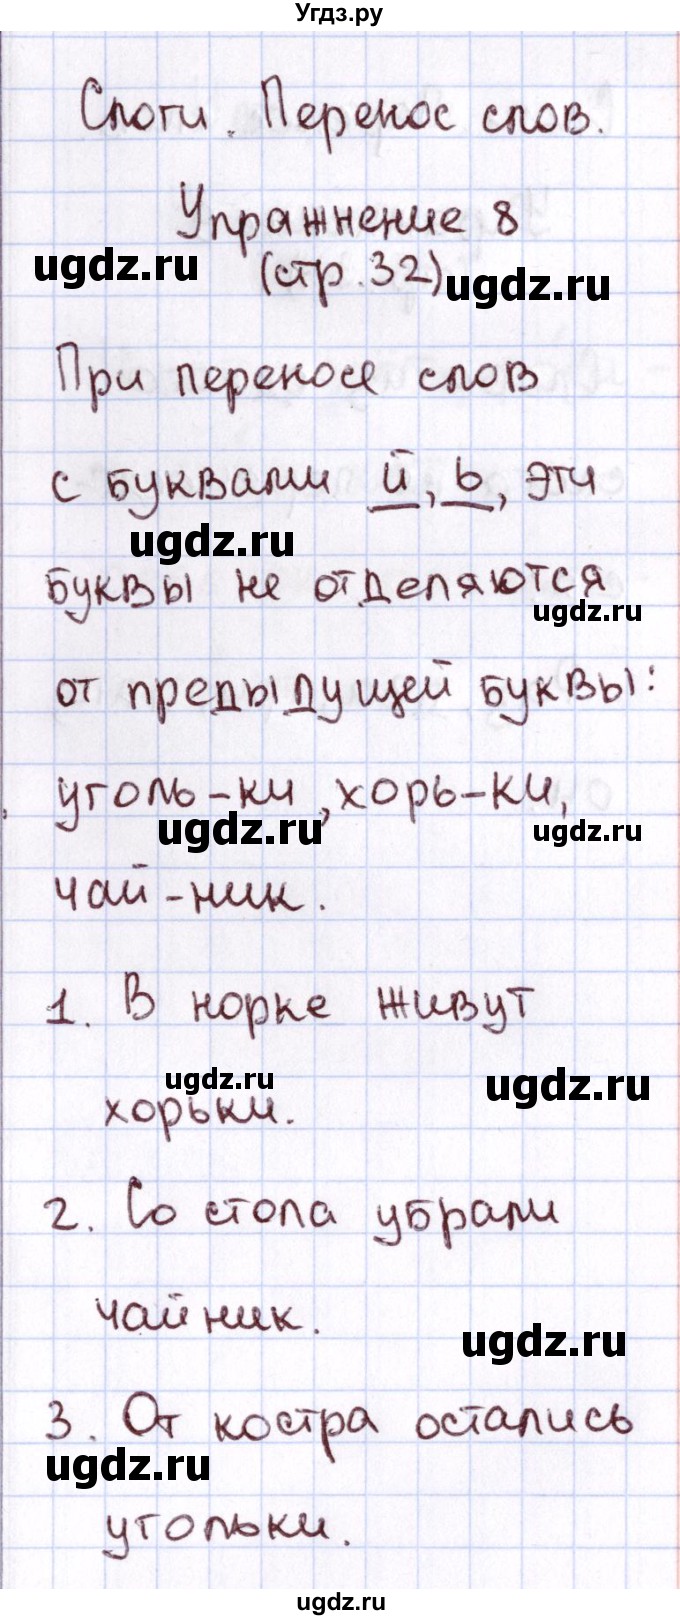 Угдз.ру
Слоги. Перенос слов.
Упражнение 8
ugdz.ru (стр.32) ugdz.ru
При переносе слов
с буквами й, ь, эти
ugdz.ru
буквы не отделяются
ugdz.ru
от предыдущей буквы:
уголь-ки, хорь-ки,
ugdz.ru ugdz.ru
чай-ник.
1. В норке живут
ugdz.ru ugdz.ru
хорьки.
2. Со стола убрали
чайник.
ugdz.ru
3. От костра остались
ugdz.ru
угольки.
ugdz.ru